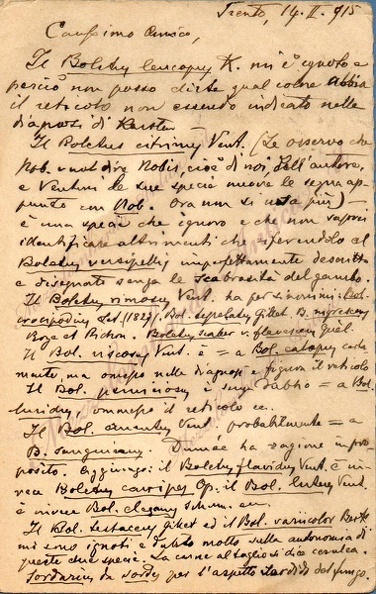 Trento, 14. II. 915
Carissimo Amico,
Il Boletus leucopus K. mi è ignoto e
perciò non posso dirle qual colore abbia
il reticolo non essendo indicato nelle
diagnosi di
Il Boletus citrinus Vent. (Le osservo che
Nob. vuol dire Nobis, cioè di noi, dell'autore,
e Venturi le sue specie nuove le segna ap-
punto con Nob. Ora non si usa più) —
è una specie che ignoro e che non saprei
identificare altrimenti che riferendolo al
Boletus versipellis imperfettamente descritto
e disegnato senza le scabrosità del gambo.
Il Boletus rimosus Vent. ha per sinonimi:
crocipodius Let. (182) Bol. Gillet B.
Roze et Richon. Boletus scaber v. Quél.
Il Bol. viscosus Vent. è = a Bol.
mente, ma omesso nelle diagnosi e figura il reticolo
Il Bol. è senza dubbio = a Bol.
luridus, ommesso il reticolo ec.
Il Bol. Vent. probabilmente = a
B. Dumée ha ragione in pro-
posito. Aggiungo: il Boletus flavidus Vent. è in-
vece Boletus Op. il Bol. luteus Vent.
è invece Bol. elegans Schum. ec.
Il Bol. testaceus Gillet ed il Bol. variicolor Berk.
mi sono ignoti e dubito molto sulla autonomia di
queste due specie. La carne al taglio si dice cerulea.
Sordarius da sordes per l'aspetto sordido del fungo.